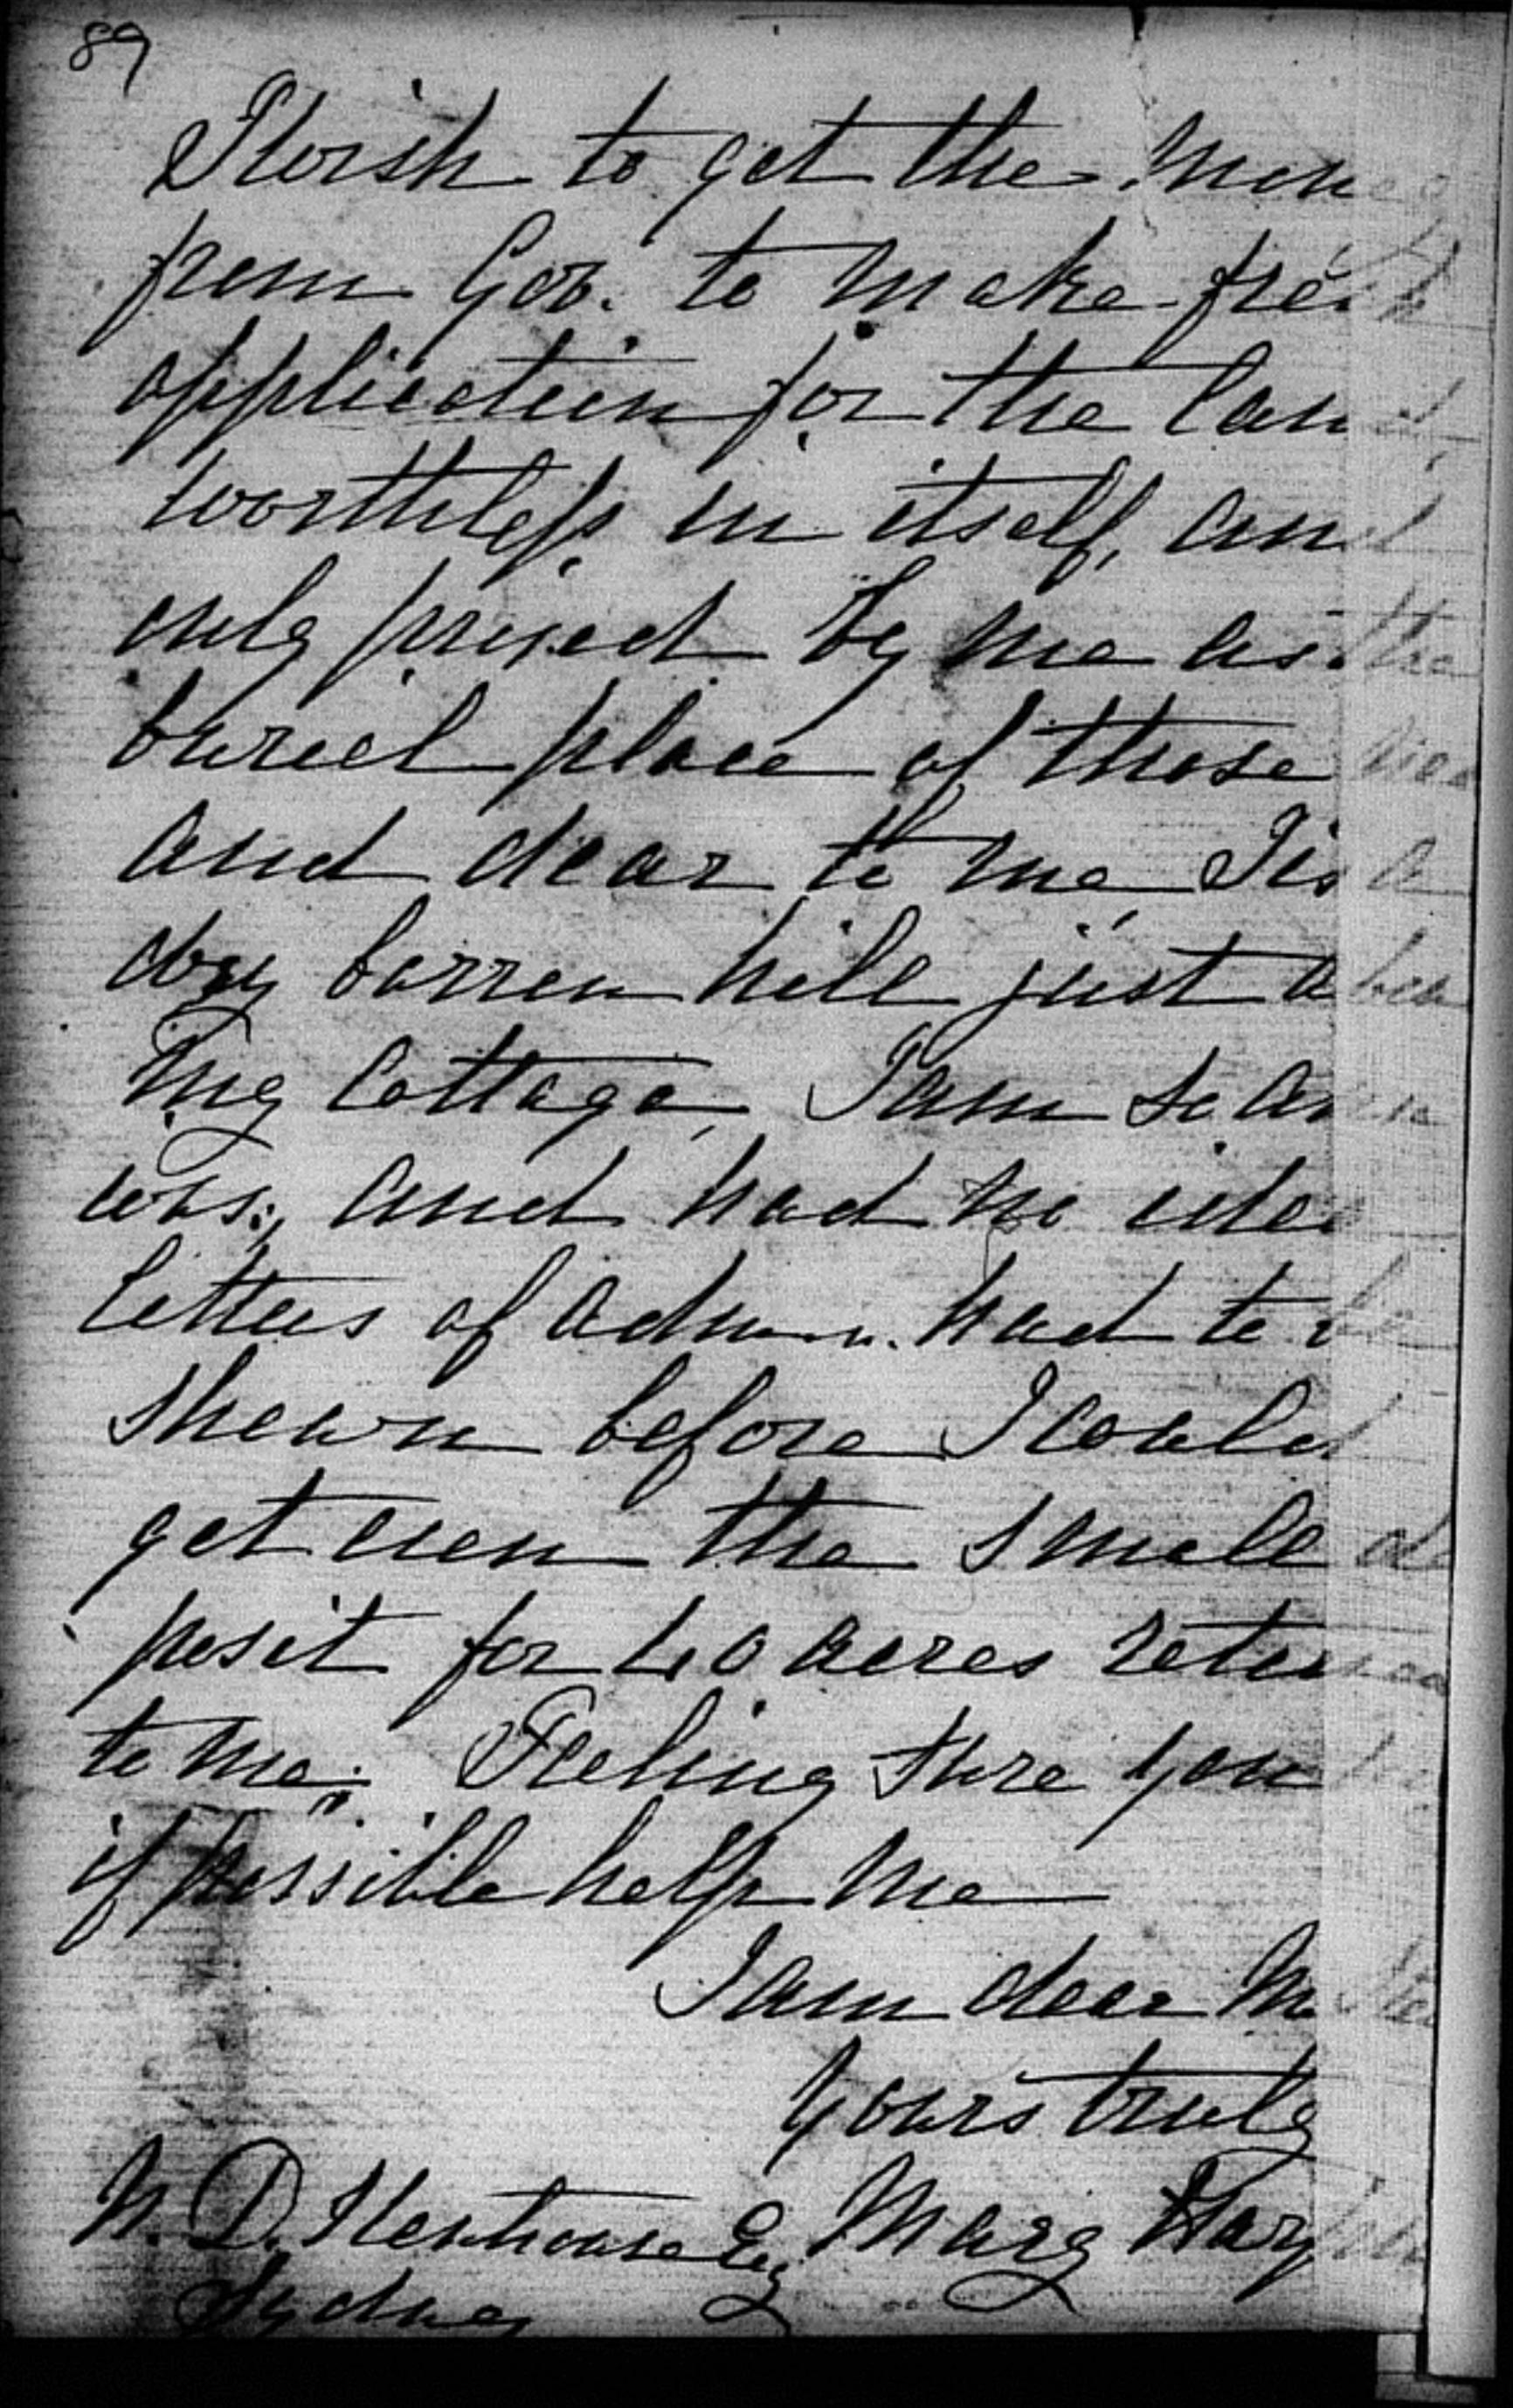 89
I wish to get the money
from Gov. to make fresh
application for the land
worthless in itself, and
only prized by me as the
buriel place of those near
and dear to me, Tis a
dry barren hill just abov
my Cottage, I am so anx
ious, and had no idea
letters of admn. had to be
shewn before I could
get even the small de
posit for 40 acres returned
to me. Feeling sure you
if possible help me
I am dear Mr
Yours truly
N. D. Stenhouse Esq Mary
Sydney